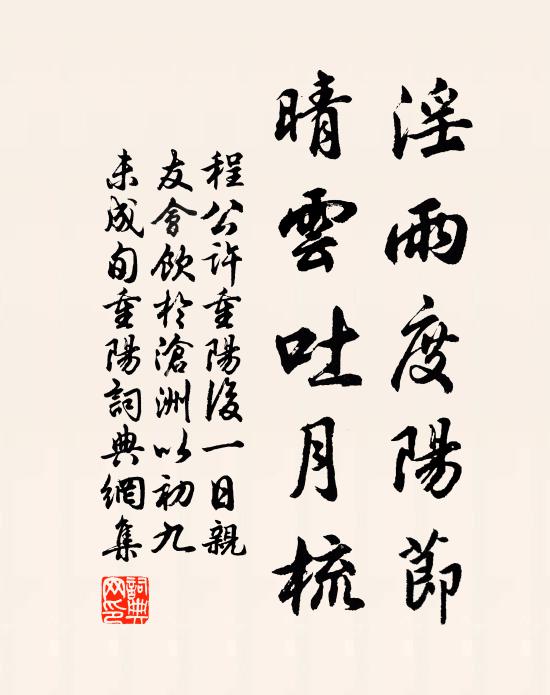 淫雨度陽節
晴雲吐月梳
程公許重陽後一日親
友會飲於滄洲以初九
未成旬重陽詞典網集
詞典
网印